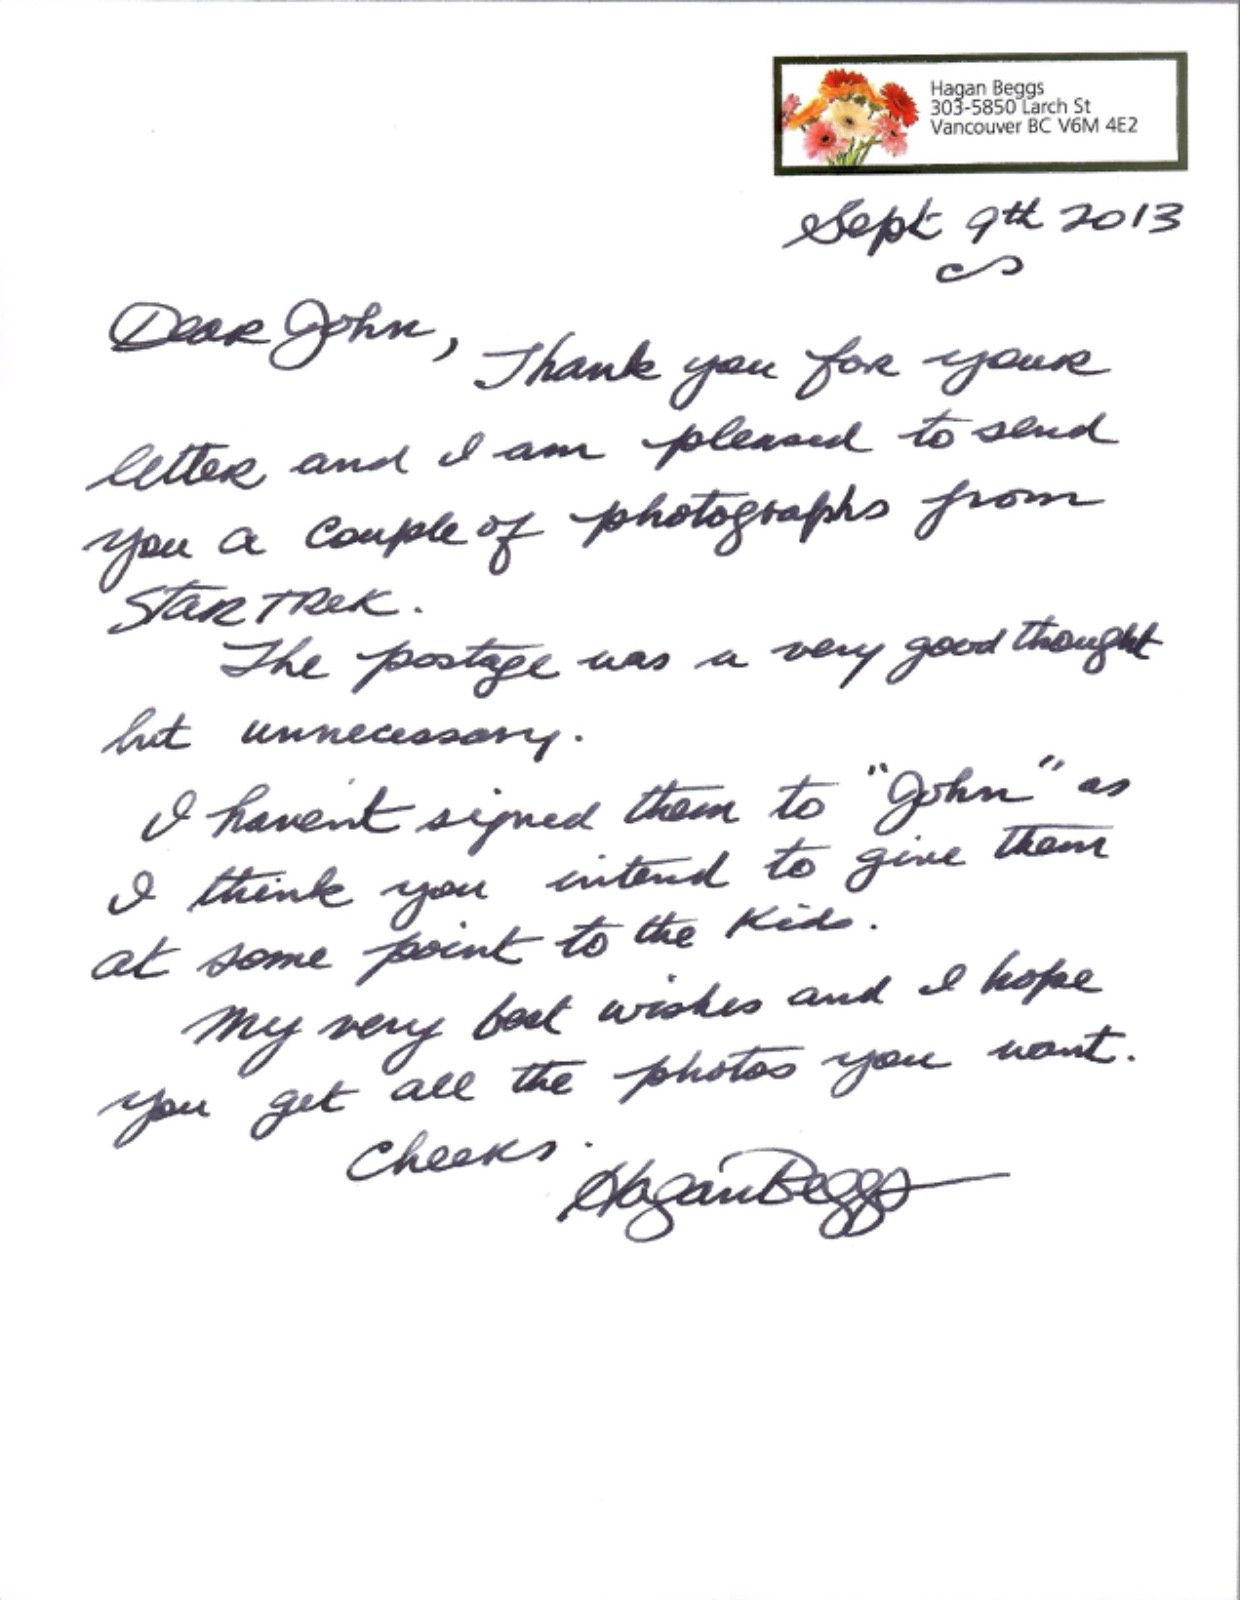 Hagan Beggs
303-5850 Larch St
Vancouver BC V6M 4E2
Sept 9th 2013
Dear John,
Thank you for your
letter and I am pleased to send
you a couple of photographs from
STAR TREK.
The postage was a very good thought
but unnecessary.
I haven't signed them to "John" as
I think you intend to give them
at some point to the Kids.
My very best wishes and I hope
you get all the photos you want.
Cheers.
Hagan Beggs